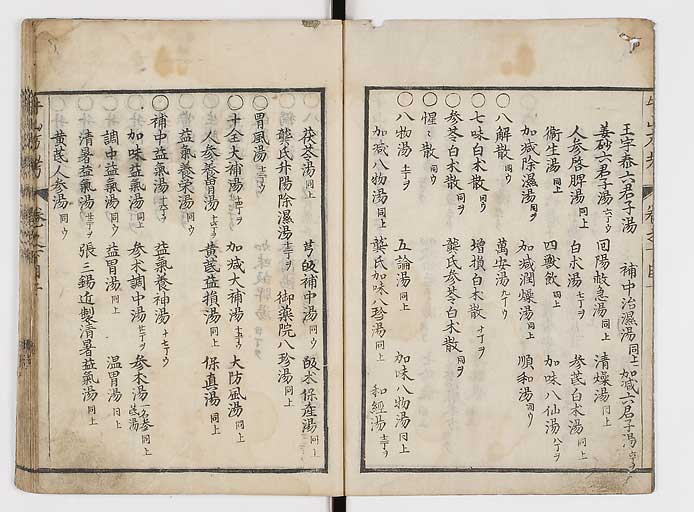 王宇泰六君子湯 補中治濕湯同上 加減六君子湯
姜砂六君子湯六丁ウ 回陽救急湯同上 清燥湯同上
人参啓脾湯同上 白朮湯七丁ヲ 参芪白朮湯同上
衛生湯同上 四獸飲同上 加味八仙湯八丁ヲ
加減除濕湯同ヲ 加減潤燥湯同上 順和湯同ウ
○八解散同ウ 萬安湯九丁ウ
○七味白朮散同ウ 増損白朮散十丁ヲ
○参苓白朮散同ウ 龔氏参苓白朮散同ヲ
○惺〻散同ウ
○八物湯十一丁ヲ 五論湯同上 加味八物湯同上
加減八物湯同上 龔氏加味八珍湯同上 和經湯十二丁ヲ
茯苓湯同上 芎歸補中湯同ウ 歸朮保産湯同上
龔氏升陽除濕湯十三丁ヲ 御藥院八珍湯同上
○胃風湯十三丁ウ
○十全大補湯十四丁ヲ 加減大補湯十五丁ウ 大防風湯同上
人参養胃湯十六丁ヲ 黄芪益損湯同上 保真湯同上
○益氣養榮湯同ウ
○補中益氣湯十七丁ヲ 益氣養神湯十七丁ウ
加味益氣湯同上 参朮調中湯 参朮湯 同上
調中益氣湯同ウ 益胃湯同上 温胃湯同上
○清暑益氣湯 張三錫近製清暑益氣湯同上
黄芪人参湯同ウ